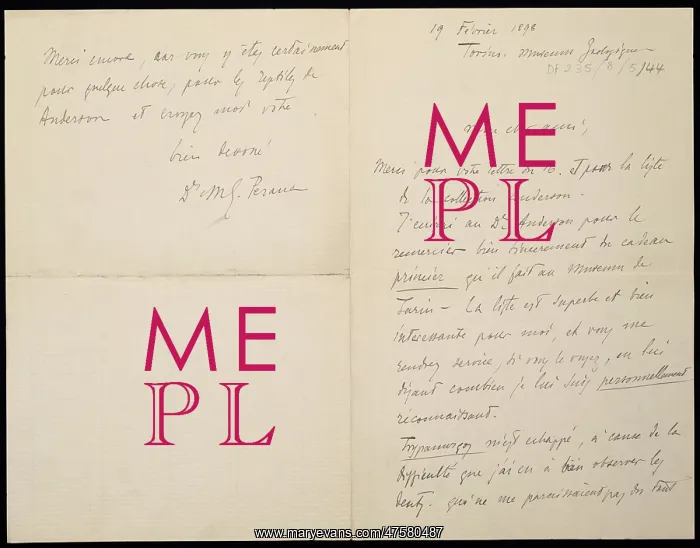 19 Février 1898
Torino. Museum Zoologique
DF 235/8/5/44
Mon cher ami,
Merci pour votre lettre du 16. et pour la liste
de la collection Anderson.
J'écrirai au Dr. Anderson pour le
remercier bien sincèrement du cadeau
princier qu'il fait au Museum de
Turin – La liste est superbe et bien
intéressante pour moi, et vous me
rendrez service, si vous le voyez, en lui
disant combien je lui suis personnellement
reconnaissant.
m'est echappé, à cause de la
difficulté que j'ai eu à bien observer les
dents. qui ne me paraissaient pas du tout
Merci encore, car vous y êtes certainement
pour quelque chose, pour les reptiles de
Anderson et croyez moi votre
bien devoué
Dr. M. G. Peracca
ME
PL
ME
PL
www.maryevans.com/47580487